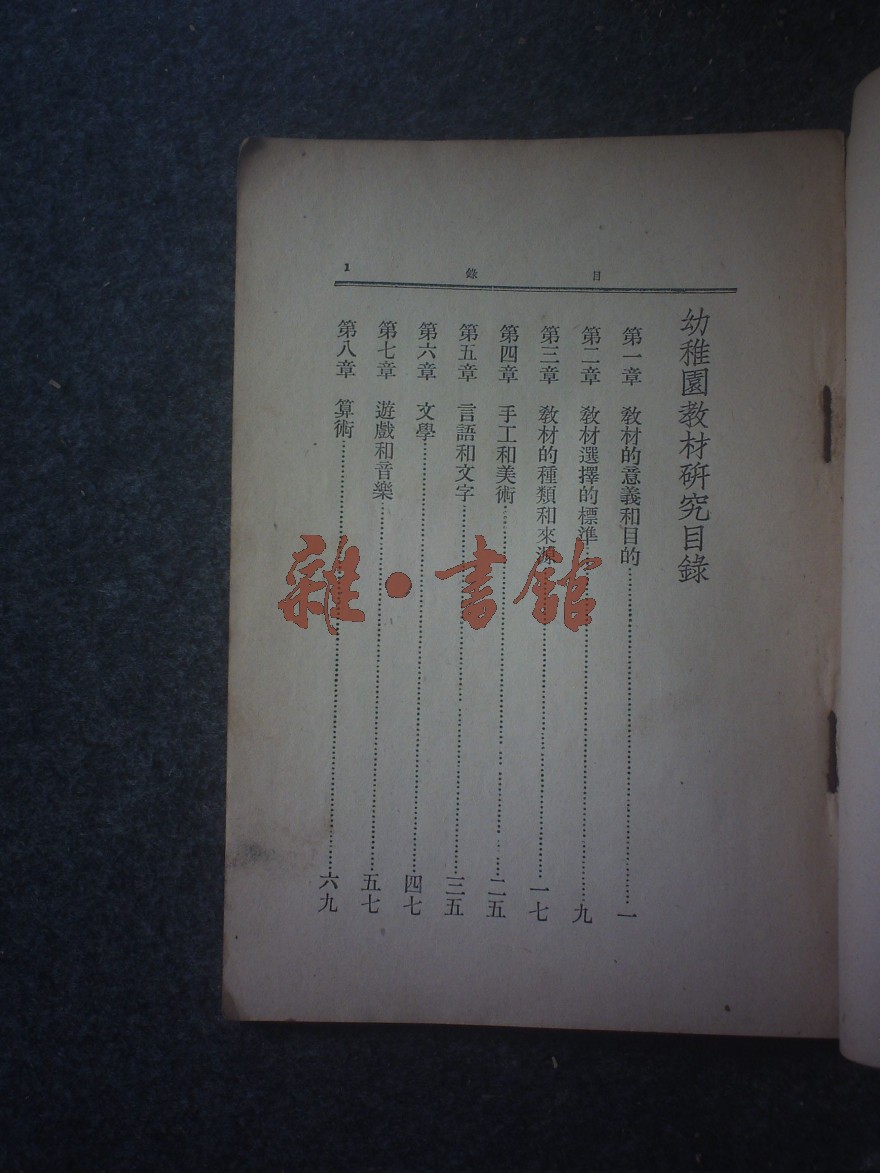 目錄
1
幼稚園教材硏究目錄
第一章 教材的意義和目的……一
第二章 教材選擇的標準……九
第三章 教材的種類和來源……一七
第四章 手工和美術……二五
第五章 言語和文字……三五
第六章 文學……四七
第七章 遊戲和音樂……五七
第八章 算術……六九
雜·書館